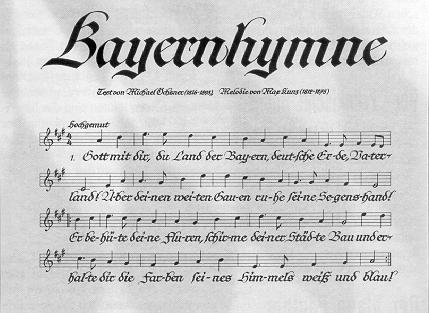 Bayernhymne
Text von Michael Öchsner (1816-1893), Melodie von Max Kunz (1812-1875)
Hochgemut
1. Gott mit dir, du Land der Bay-ern, deut-sche Er-de, Va-ter-
land! Ü-ber dei-nen wei-ten Gau-en ru-he sei-ne Se-gens-hand!
Er be-hü-te dei-ne Flu-ren, schir-me dei-ner Städ-te Bau und er-
hal-te dir die Far-ben sei-nes Him-mels weiß und blau!